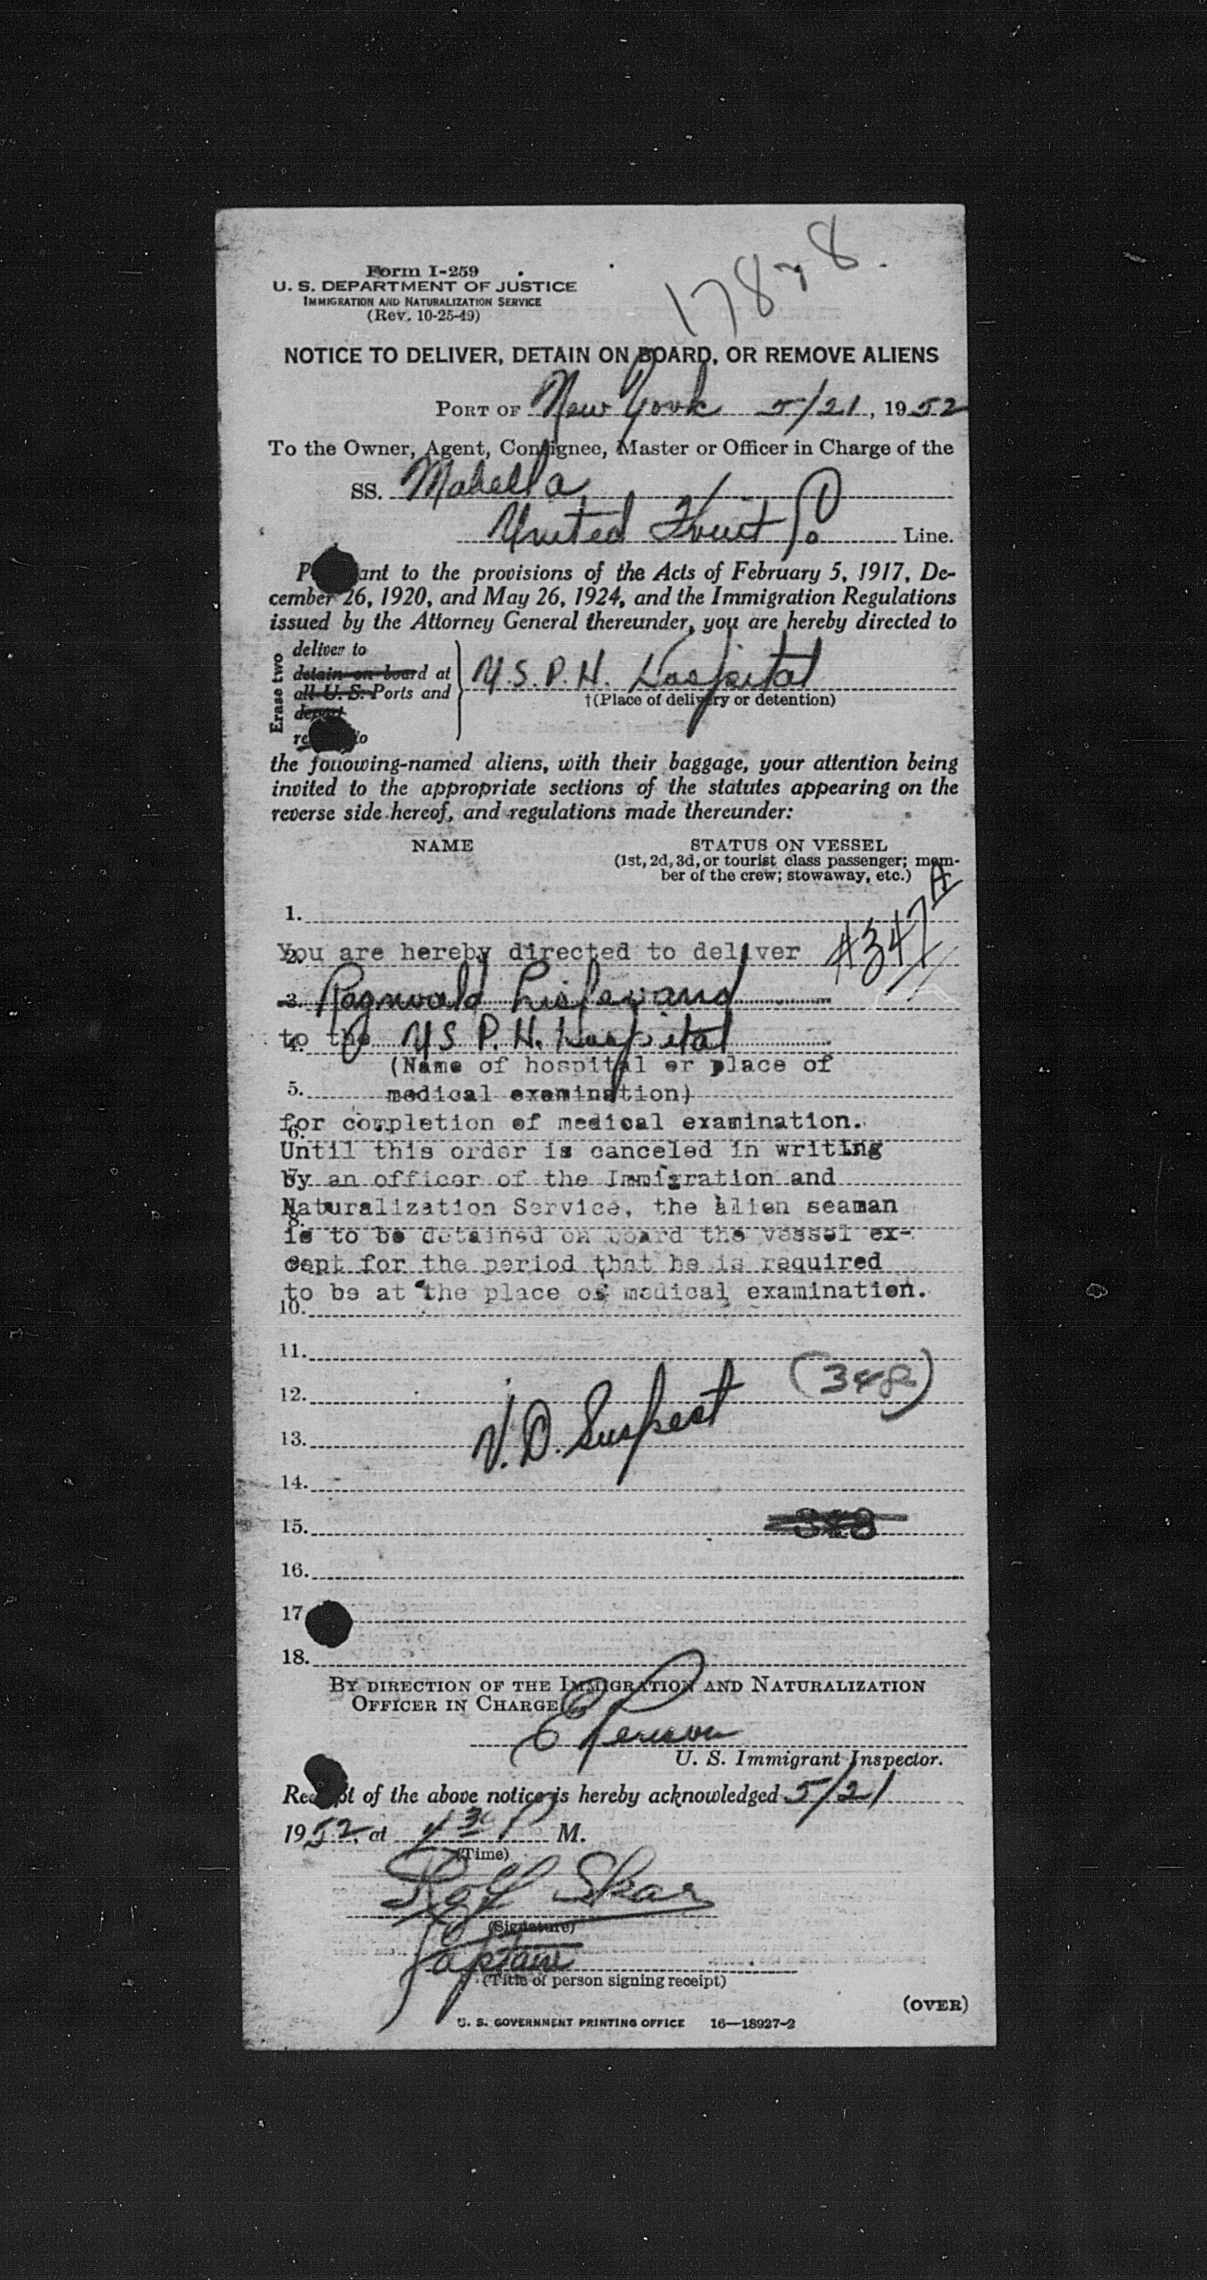 17878.
Form I-259
U. S. DEPARTMENT OF JUSTICE
IMMIGRATION AND NATURALIZATION SERVICE
(Rev. 10-25-49)
NOTICE TO DELIVER, DETAIN ON BOARD, OR REMOVE ALIENS
PORT OF New York 5/21, 1952
To the Owner, Agent, Consignee, Master or Officer in Charge of the
SS. Mabella
United Fruit Co Line.
P ant to the provisions of the Acts of February 5, 1917, De-
cember 26, 1920, and May 26, 1924, and the Immigration Regulations
issued by the Attorney General thereunder, you are hereby directed to
Erase two
deliver to
detain on board at
all U. S. Ports and
deport
re to
U.S.P.H. Hospital
†(Place of delivery or detention)
the following-named aliens, with their baggage, your attention being
invited to the appropriate sections of the statutes appearing on the
reverse side hereof, and regulations made thereunder:
NAME STATUS ON VESSEL
(1st, 2d, 3d, or tourist class passenger; mem-
ber of the crew; stowaway, etc.)
1.
#347A
2. You are hereby directed to deliver
3. Ragnvald
4. to the US P.H. Hospital
(Name of hospital or place of
5. medical examination)
for completion of medical examination.
6.
Until this order is canceled in writing
by an officer of the Immigration and
Naturalization Service, the alien seaman
8.
is to be detained on board the vessel ex-
cept for the period that he is required
to be at the place of medical examination.
10.
11.
12. (348)
13. V.D. Suspect
14.
15. 348
16.
17
18.
BY DIRECTION OF THE IMMIGRATION AND NATURALIZATION
OFFICER IN CHARGE
E
U. S. Immigrant Inspector.
Receipt of the above notice is hereby acknowledged 5/21
1952, at P M.
(Time)
Rolf Skar
(Signature)
Captain
(Title of person signing receipt)
(OVER)
U. S. GOVERNMENT PRINTING OFFICE 16—18927-2